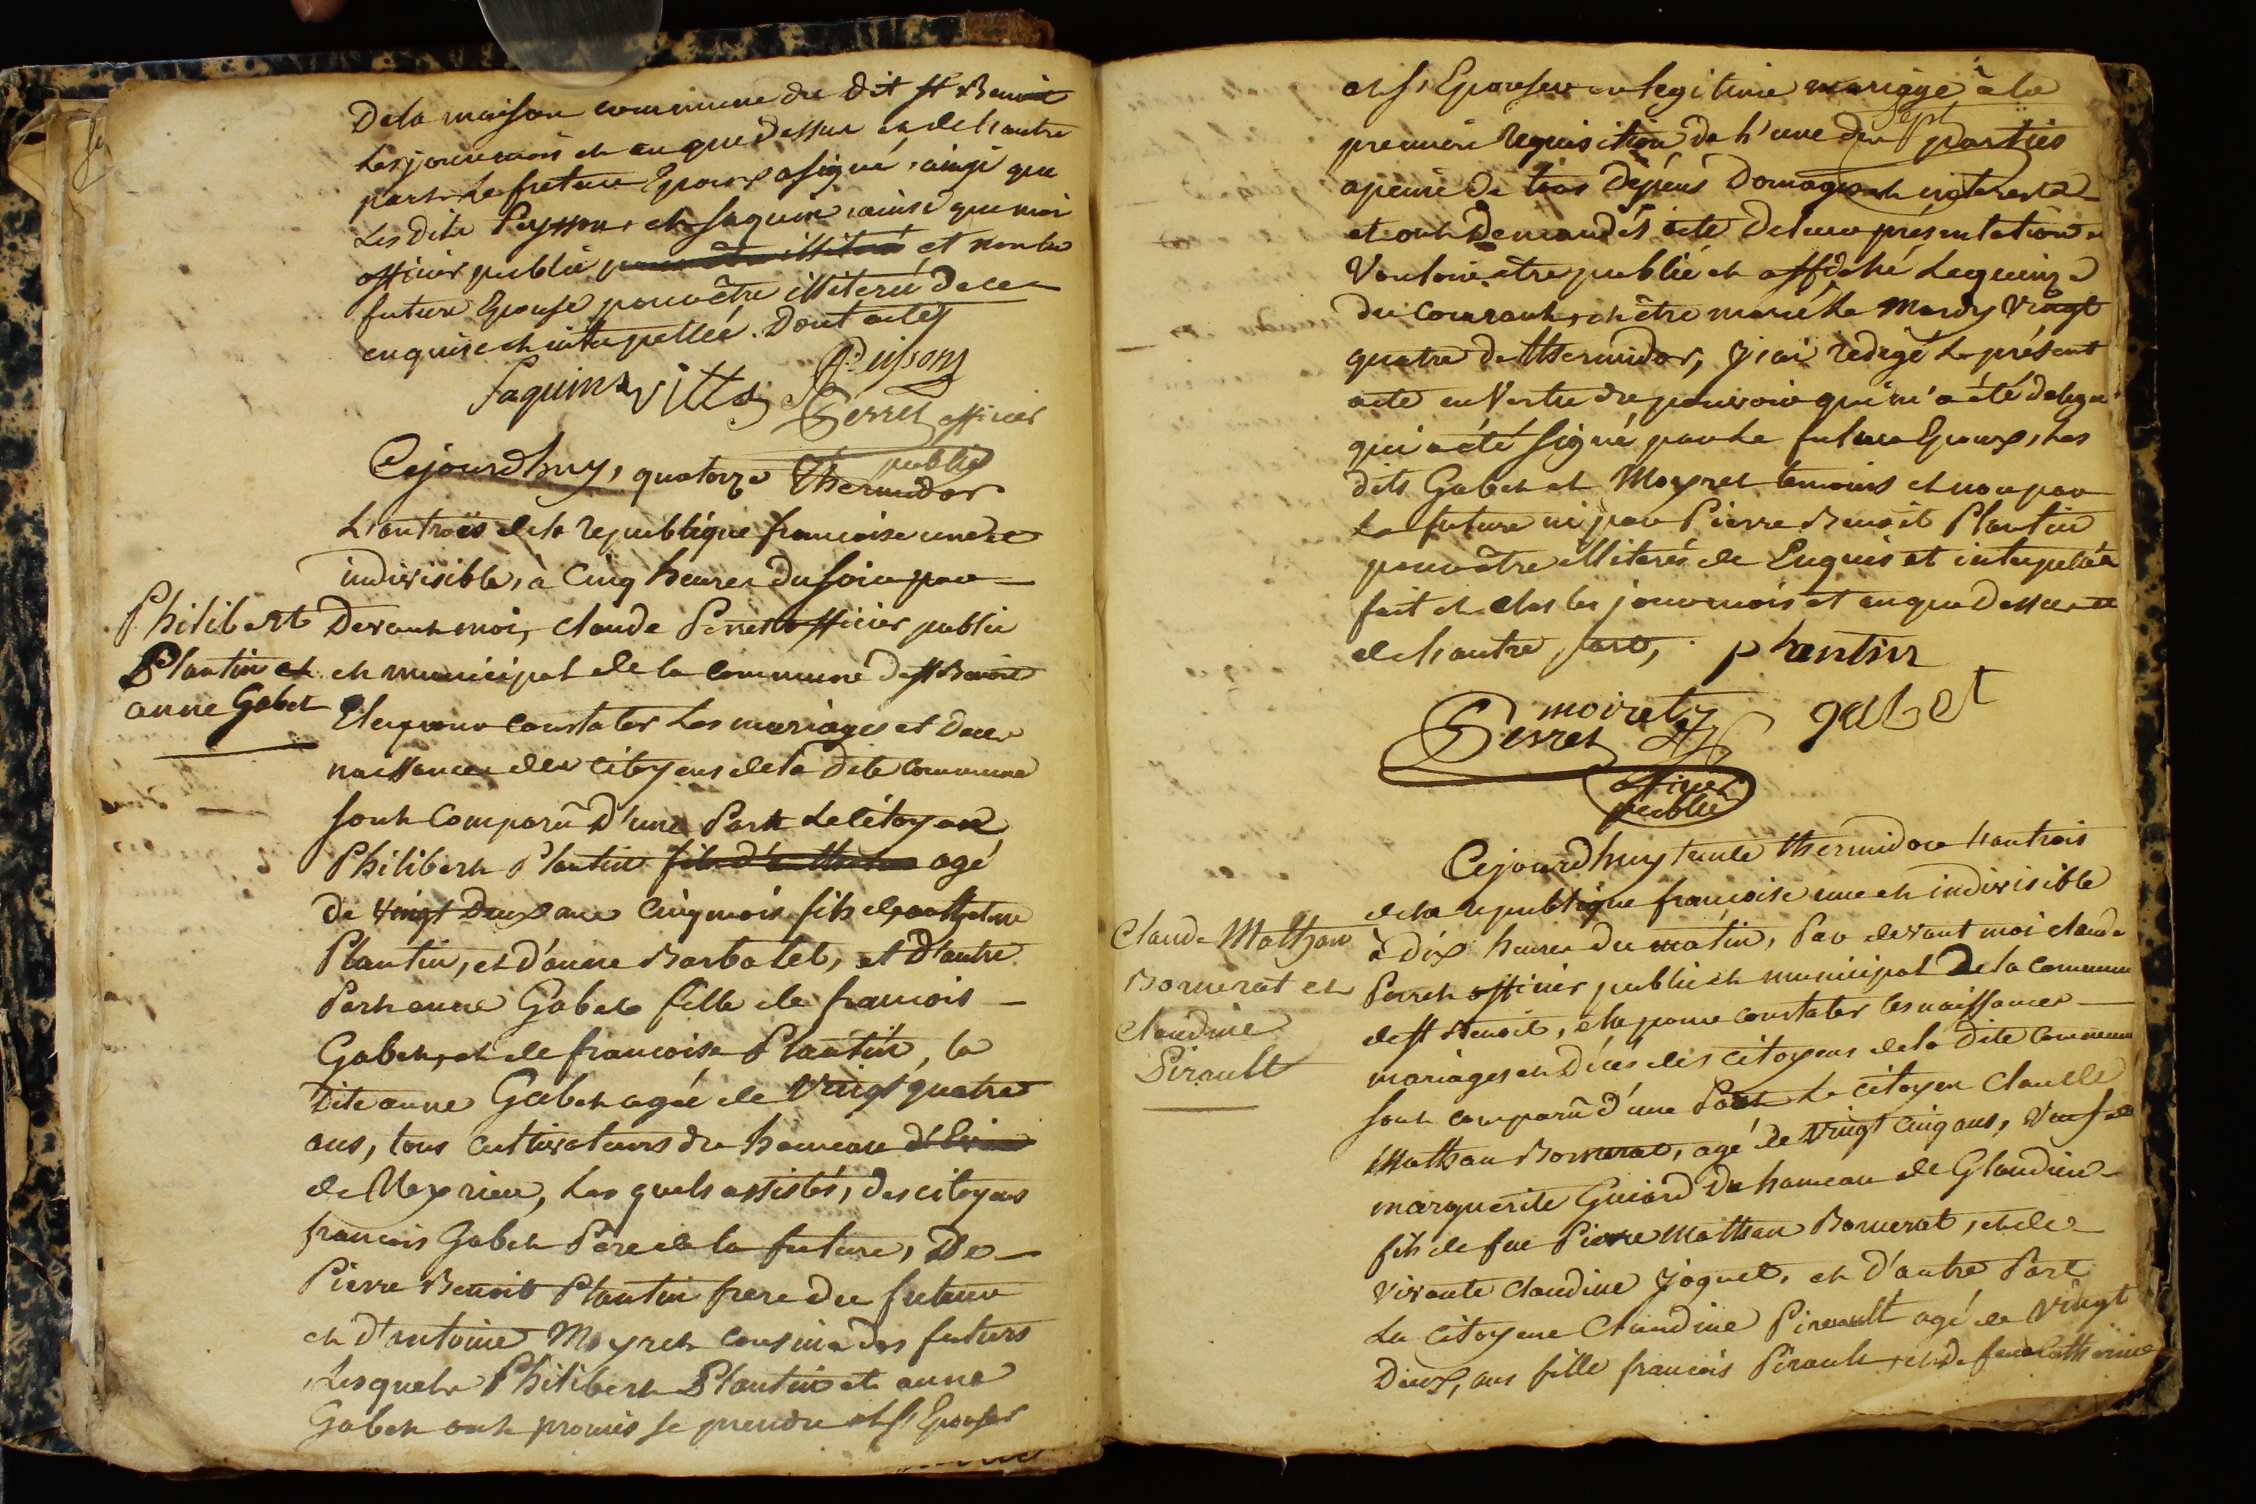 De la maison commune du dit st Benoit
Les jour mois et an que dessus et de l'autre
part Le future Epoux a signé, ainsi que
Les dits Peysson, et Jaquin, ainsi que moi
officier public et non la
future Epouse pour être illiteré de ce
enquise et interpellée. Dont acte
Jaquin Vittoz Peissons
Perret officier
public
Cejourdhuy, quatorze Thermidor
L'an trois de la republique francoise une et
indivisible, à Cinq heures du soir par
Devant moi, Claude Perret officier public
et municipal de la Commune de st Benoit
Elu pour constater Les mariages et Deces
naissances des Citoyens de la Dite Commune
sont Comparû d'une Part Le Citoyen
Philibert Plantin agé
de Vingt Deux ans Cinq mois fils de
Plantin, et d'anne Barbolet, et D'autre
Part anne Gabet fille de francois
Gabet, et de francoise Plantin, la
Dite anne Gabet agée de Vingt quatre
ans, tous Cultivateurs du hameau
de Meyrieu, Les quels assistés, des citoyens
francois Gabet Pere de la future, De
Pierre Benoit Plantin frere du future
et d'antoine Moyret Cousin des futurs
Lesquels Philibert Plantin et anne
Gabet ont promis se prendre et s'Epouser
Philibert
Plantin et
anne Gabet
et s'Epouser en legitime mariage à la
sept
premiere Requisition de l'une des parties
apeine de tous Dépens Domages et interests
et ont Demandés acte De leur présentation
Vouloir être publié et affiché Le quinze
du Courant, et être marié Le Mardy Vingt
quatre de thermidor, J'ai redigé Le présent
acte en Vertu du pouvoir qui m'a été delegué
qui a été signé par Le future Epoux, Les
dits Gabet et Moyret temoins et non par
La future ni par Pierre Benoit Plantin
pour être illiterés de Enquis et interpellés
fait et clos les jour mois et an que Dessus et
de l'autre part, plantin
moiret gabet
Perret
officier
public
Cejourdhuy trente thermidor L'an trois
de la republique francoise une et indivisible
à Dix heures du matin, Par devant moi Claude
Perret officier public et municipal De la Commune
de st Benoit, élu pour constater les naissances
mariages et Décés des citoyens de la Dite Commune
sont comparû d'une Part Le Citoyen Claude
Mathan Bornerat, agé de Vingt Cinq ans, Veuf de
marguerite Guiard du hameau de Glandieu
fils de feu Pierre Mathan Bornerat, et de
Vivante Claudine Joquet, et d'autre Part
La Citoyene Claudine Pirault agé de Vingt
Deux, ans fille francois Pirault, et de feue Catherine
Claude Mathan
Bornerat et
Claudine
Pirault